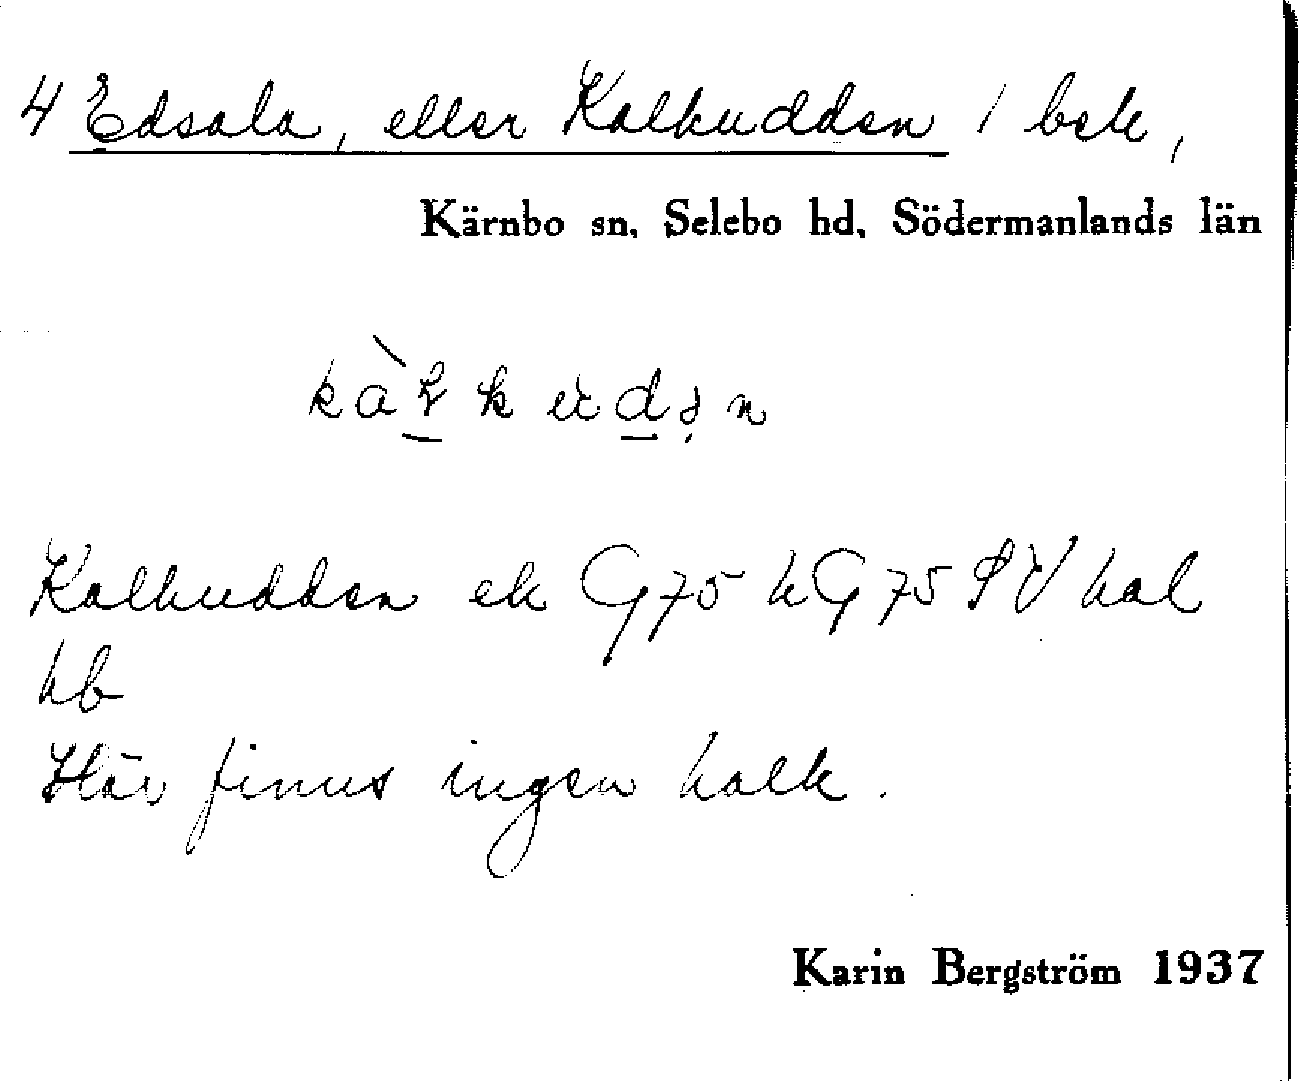 4 Edsala, eller Kalkudden 1 bsk,
Kärnbo sn, Selebo hd, Södermanlands län
Kalkudden ek G 75 hG 75 SV kal
hb
Här finns ingen kalk.
Karin Bergström 1937